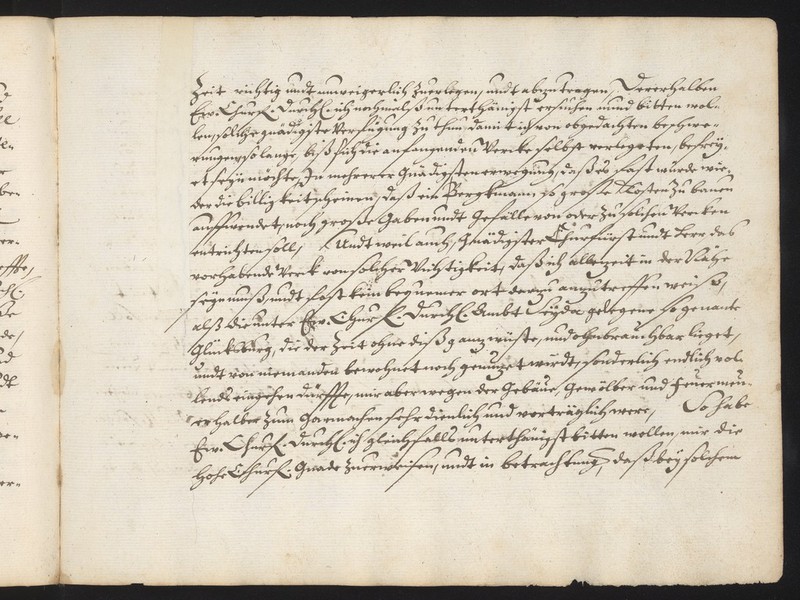 Zeit richtig undt unweigerlich zuerlegen, undt abzutragen, Dererhalben
Ew. Churf. Durchl. ich nochmalß unterthänigst ersuchen unnd bitten wol-
len, solche gnädigste Verfügung zu thun, damit ich von obgedachten beschwe-
rungen so lange, biß sich die anfangenden Wercke selbst verlegeten, befrey-
et seyn möchte, In mehrerer Gnädigsten erwegung, daß es fast würde wie-
der die billigkeit scheinen, daß ein Bergkmann so große Kosten zu bauen
auffwendet, noch große Gaben undt Gefälle von oder zu solchen Wercken
entrichten soll, Undt weil auch, Gnädigster Churfürst undt Herr das
vorhabende Werck von solcher Wichtigkeit, daß ich allezeit in der Nähe
seyn muß, undt fast kein bequemer ort darzu anzutreffen weiß,
alß die unter Ew. Churf. Durchl. Ambt Seyda gelegene so genante
Glücksburg, die der Zeit ohne diß ganz wüste, und ohnbrauchbar lieget,
undt von niemanden bewohnet noch genuzet wirdt, sonderlich endlich vol-
lends eingehen dürffte, mir aber wegen der Gebäue, Gewölber und Feuermeu-
er halber zum Garmachen sehr dienlich und vorträglich were, So habe
Ew. Churf. Durchl. ich gleichfalls unterthänigst bitten wollen, mir die
hohe Churf. Gnade zuerweisen, undt in betrachtung, daß bey solchem